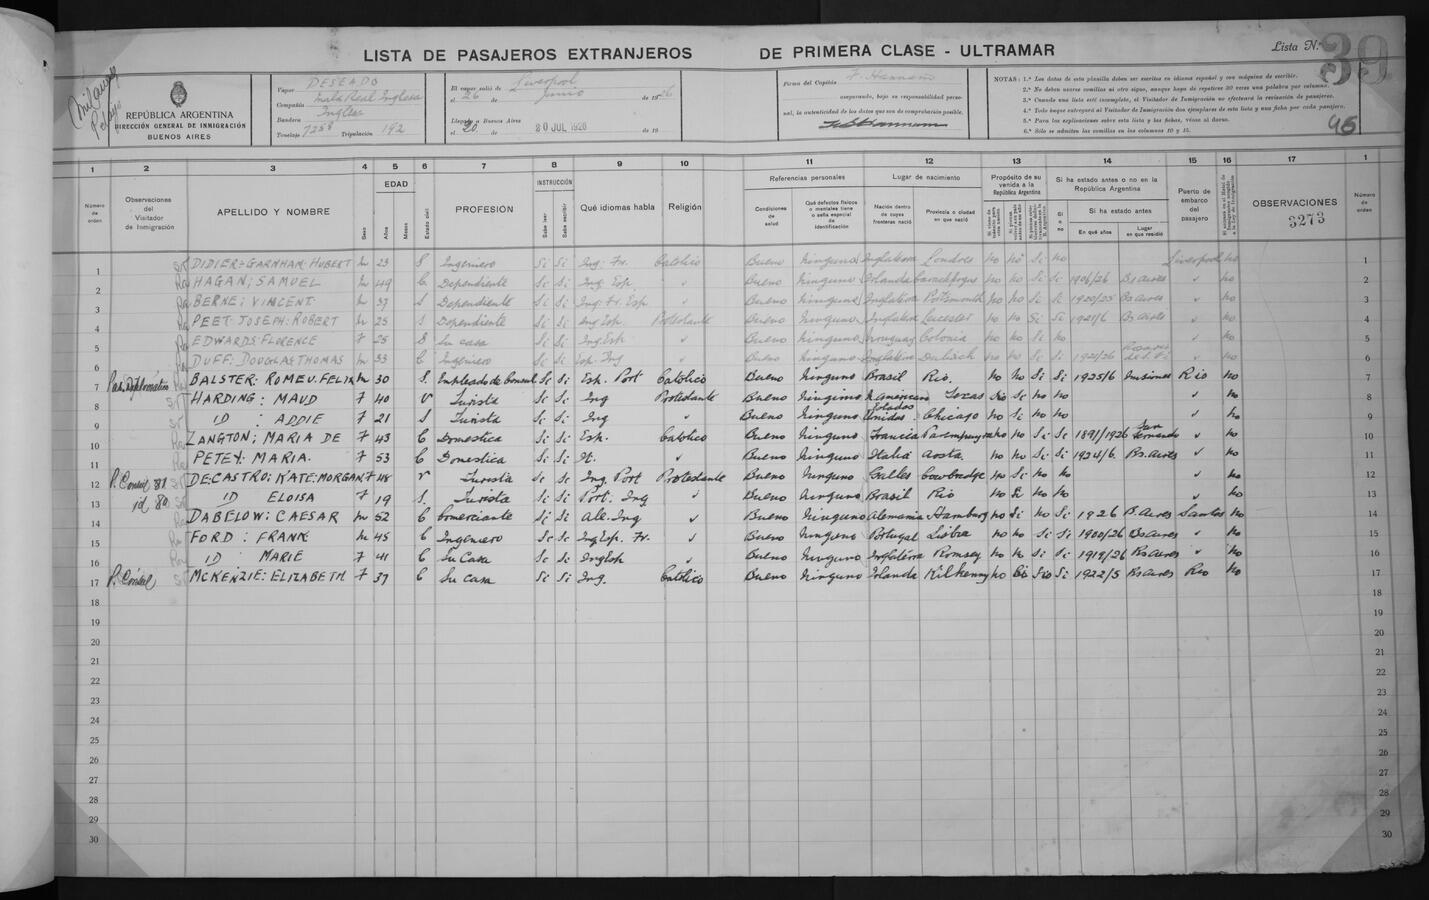 LISTA DE PASAJEROS EXTRANJEROS DE PRIMERA CLASE - ULTRAMAR
Lista N.° 39
REPÚBLICA ARGENTINA
DIRECCIÓN GENERAL DE INMIGRACIÓN
BUENOS AIRES
Vapor DESEADO
Compañía Mala Real Inglesa
Bandera Inglesa
Tonelaje 7258 Tripulación 192
El vapor salió de Liverpool
el 26 de Junio de 1926
Llegada a Buenos Aires
el 20 de 20 JUL 1926 de 19
Firma del Capitán
asegurando, bajo su responsabilidad personal, la autenticidad de los datos que son de comprobación posible.
NOTAS: 1.ª Los datos de esta planilla deben ser escritos en idioma español y con máquina de escribir.
2.ª No deben usarse comillas ni otro signo, aunque haya de repetirse 30 veces una palabra por columna.
3.ª Cuando una lista esté incompleta, el Visitador de Inmigración no efectuará la revisación de pasajeros.
4.ª Todo buque entregará al Visitador de Inmigración dos ejemplares de esta lista y una ficha por cada pasajero.
5.ª Para las explicaciones sobre esta lista y las fichas, véase al dorso.
6.ª Sólo se admiten las comillas en las columnas 10 y 15.
45
1 2 3 4 5 6 7 8 9 10 11 12 13 14 15 16 17 1
Número de orden
Observaciones del Visitador de Inmigración
APELLIDO Y NOMBRE
Sexo
EDAD
Años
Meses
Estado civil
PROFESIÓN
INSTRUCCIÓN
Sabe leer
Sabe escribir
Qué idiomas habla
Religión
Referencias personales
Condiciones de salud
Qué defectos físicos o mentales tiene o seña especial de identificación
Lugar de nacimiento
Nación dentro de cuyas fronteras nació
Provincia o ciudad en que nació
Propósito de su venida a la República Argentina
Si ha estado antes o no en la República Argentina
Si o no
Si ha estado antes
En qué años
Lugar en que residió
Puerto de embarco del pasajero
OBSERVACIONES
3273
Número de orden
1 DIDIER-GARNHAM: HUBERT M 23 S Ingeniero Si Si Ing. Fr. Católico Bueno Ninguno Inglaterra Londres No No Si No Liverpool No 1
2 HAGAN; SAMUEL M 49 C Dependiente Si Si Ing. Esp. " Bueno Ninguno Irlanda No No Si Si 1906/26 Bs Aires " No 2
3 BERNE; VINCENT M 37 S Dependiente Si Si Ing. Fr. Esp " Bueno Ninguno Inglaterra Portsmouth No No Si Si 1920/25 Bs Aires " No 3
4 PEET: JOSEPH: ROBERT M 25 S Dependiente Si Si Ing Esp. Protestante Bueno Ninguno Inglaterra Leicester No No Si Si 1921/6 Bs Aires " No 4
5 EDWARDS: FLORENCE F 25 S Su casa Si Si Ing. Esp " Bueno Ninguno Uruguay Colonia No No Si No " No 5
6 DUFF: DOUGLAS THOMAS M 33 C Ingeniero Si Si Esp. Ing " Bueno Ninguno Inglaterra No No Si Si 1921/26 Rosario de S. Fe " No 6
7 Pas. Diplomatico BALSTER: ROMEU. FELIX M 30 S. Empleado de Consul Si Si Esp. Port Católico Bueno Ninguno Brasil Rio. No No Si Si 1925/6 Misiones Rio No 7
8 HARDING: MAUD F 40 V Turista Si Si Ing Protestante Bueno Ninguno N. American Texas No Si No No " No 8
9 ID : ADDIE F 21 S Turista Si Si Ing " Bueno Ninguno Estados Unidos Chicago No Si No No " No 9
10 LANGTON; MARIA DE F 43 C Domestica Si Si Esp. Católico Bueno Ninguno Francia No No Si Si 1891/1926 San Fernando " No 10
11 PETEY: MARIA. F 53 C Domestica Si Si It. " Bueno Ninguno Italia Aosta. No No Si Si 1924/6. Bs. Aires " No 11
12 P. Consul 81 DE CASTRO: KATE: MORGAN F 48 V Turista Si Si Ing. Port Protestante Bueno Ninguno Galles Cowbridge No Si No No " No 12
13 id 80 ID ELOISA F 19 S. Turista Si Si Port. Ing " Bueno Ninguno Brasil Rio No Si No No " No 13
14 DABELOW: CAESAR M 52 C Comerciante Si Si Ale. Ing " Bueno Ninguno Alemania Hamburg No Si No Si 1926 B. Aires Santos No 14
15 FORD: FRANK M 45 C Ingeniero Si Si Ing Esp. Fr. " Bueno Ninguno Portugal Lisboa No No Si Si 1900/26 Bs Aires " No 15
16 ID MARIE F 41 C Su Casa Si Si Ing Esp " Bueno Ninguno Inglaterra Romsey No No Si Si 1919/26 Bs Aires " No 16
17 P. Consul McKENZIE: ELIZABETH F 37 C Su Casa Si Si Ing. Católico Bueno Ninguno Irlanda Kilkenny No Si No Si 1922/5 Bs Aires Rio No 17
18 18
19 19
20 20
21 21
22 22
23 23
24 24
25 25
26 26
27 27
28 28
29 29
30 30